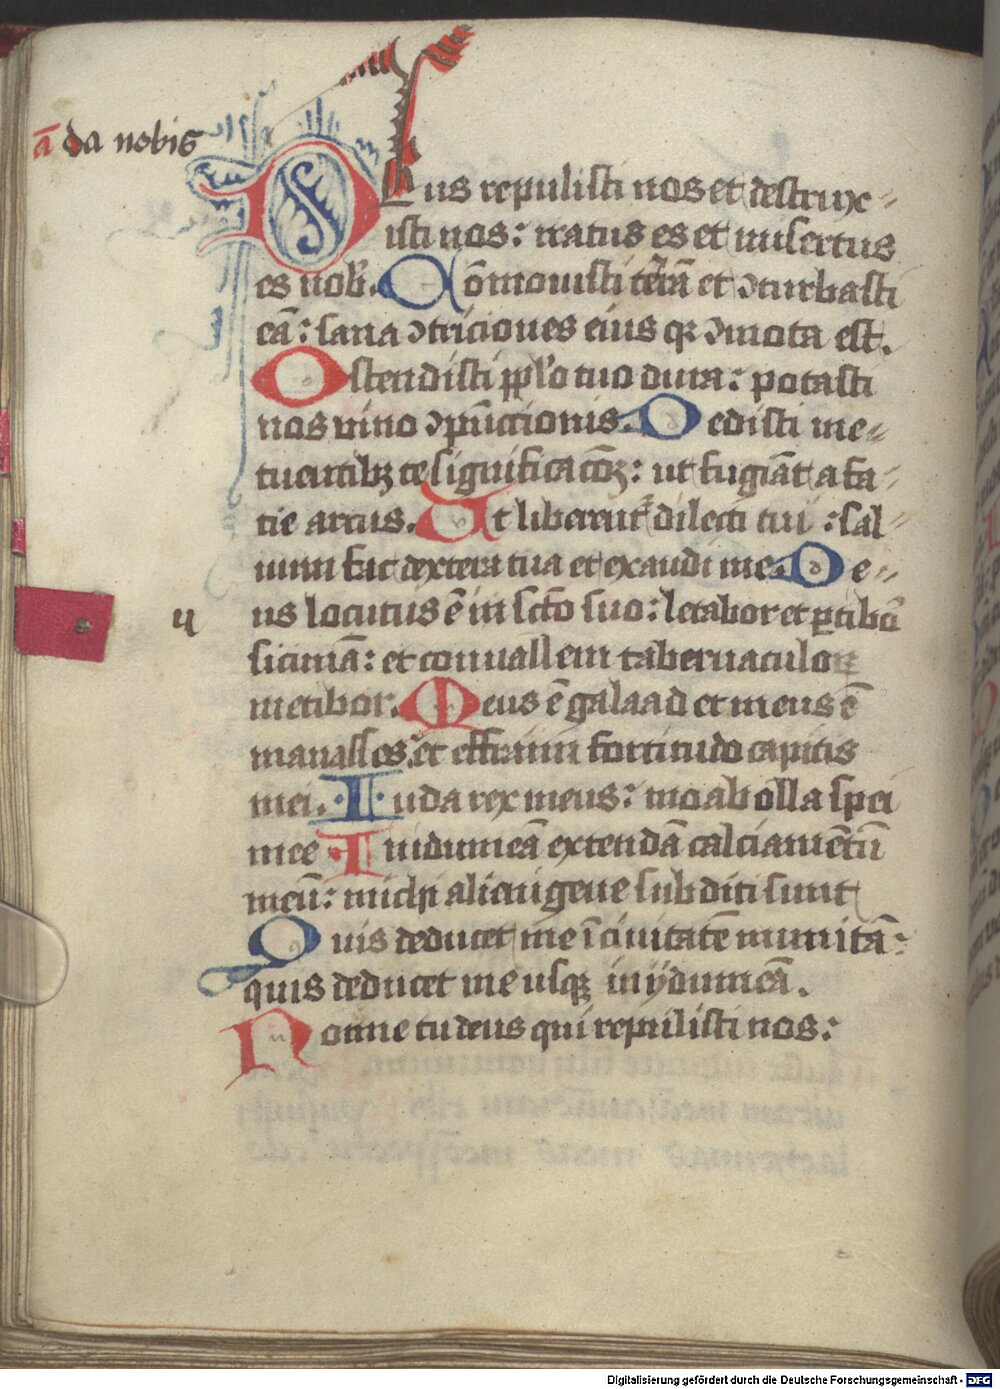 a̅ da nobis
DEus repulisti nos et destrux⸗
isti nos: iratus es et misertus
es nob̅. Co̅mouisti t̅r̅a̅ et ꝯturbasti
ea̅: sana ꝯtriciones eius qꝛ ꝯmota est.
Ostendisti pplo̅ tuo dura: potasti
nos vino ꝯpu̅ccionis. Dedisti me⸗
tuentibꝫ te significaco̅ꝫ: ut fugia̅t a fa⸗
cie arcus. Ut liberent᷑ dilecti tui: sal⸗
uum fac dextera tua et exaudi me. De⸗
us locutus e̅ in sc̅to suo: letabor et ꝑtibor
sicima̅: et conuallem tabernaculoꝝ
metibor. Meus e̅ galaad et meus e̅
manasses: et effraim fortitudo capitis
mei. Iuda rex meus: moab olla spei
mee In idumea̅ extenda̅ calciame̅tu̅
meu̅: michi alienigene subditi sunt
Quis deducet me i̅ ciuitate̅ munita̅:
quis deducet me usqꝫ in ydumea̅.
Nonne tu deus qui repulisti nos:
Digitalisierung gefördert durch die Deutsche Forschungsgemeinschaft - DFG